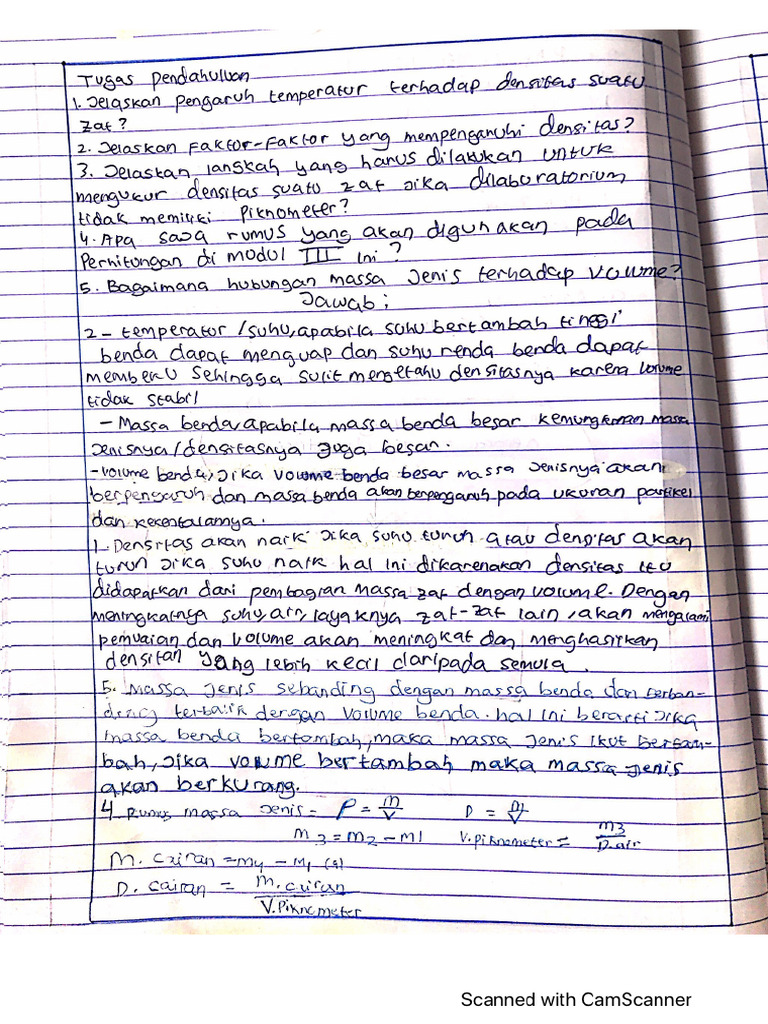 Tugas Pendahuluan
1. Jelaskan Pengaruh temperatur terhadap densitas suatu
zat?
2. Jelaskan Faktor-Faktor yang mempengaruhi densitas?
3. Jelaskan langkah yang harus dilakukan untuk
mengukur densitas suatu zat jika dilaboratorium
tidak memiliki Piknometer?
4. Apa saja rumus yang akan digunakan pada
Perhitungan di modul III ini?
5. Bagaimana hubungan massa jenis terhadap volume?
Jawab;
2 - temperatur /suhu, apabila suhu bertambah tinggi
benda dapat menguap dan suhu renda benda dapat
membeku sehingga sulit mengetahu densitasnya karena volume
tidak stabil
- Massa benda, apabila massa benda besar kemungkinan massa
jenisnya/densitasnya juga besar.
- volume benda, jika volume benda besar massa jenisnya akan
berpengaruh dan massa benda akan berpengaruh pada ukuran partikel
dan kekentalannya.
1. Densitas akan naik jika suhu turun atau densitas akan
turun jika suhu naik hal ini dikarenakan densitas itu
didapatkan dari pembagian massa zat dengan volume. Dengan
meningkatnya suhu, air, layaknya zat-zat lain, akan mengalami
pemuaian dan volume akan meningkat dan menghasilkan
densitan yang lebih kecil daripada semula.
5. Massa jenis sebanding dengan massa benda dan berban-
ding terbalik dengan volume benda. hal ini berarti jika
massa benda bertambah, maka massa jenis ikut bertam-
bah, jika volume bertambah maka massa jenis
akan berkurang.
4 Rumus massa jenis = P = m/V D = m/V
m3 = m2 - m1 V. piknometer = m3/D.air
M. cairan = m4 - m1 (g)
D. cairan = m. cairan/V. Piknometer
Scanned with CamScanner